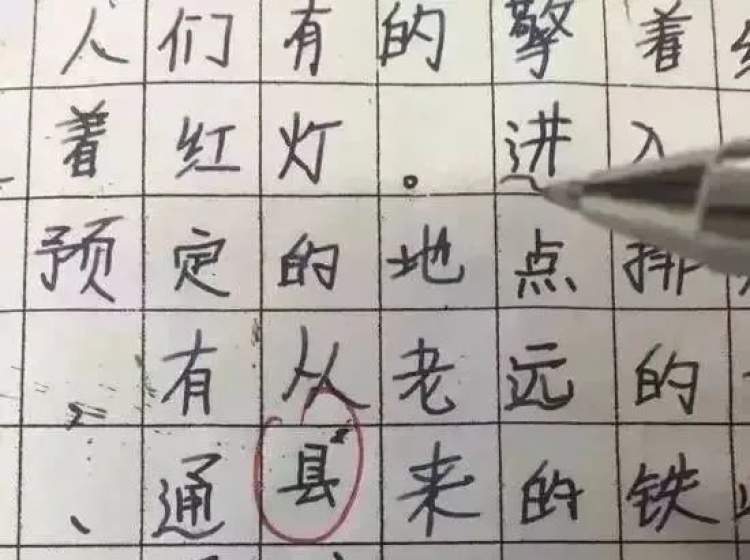 人们有的擎着
着红灯。进入
预定的地点排
，有从老远的
、通县来的铁